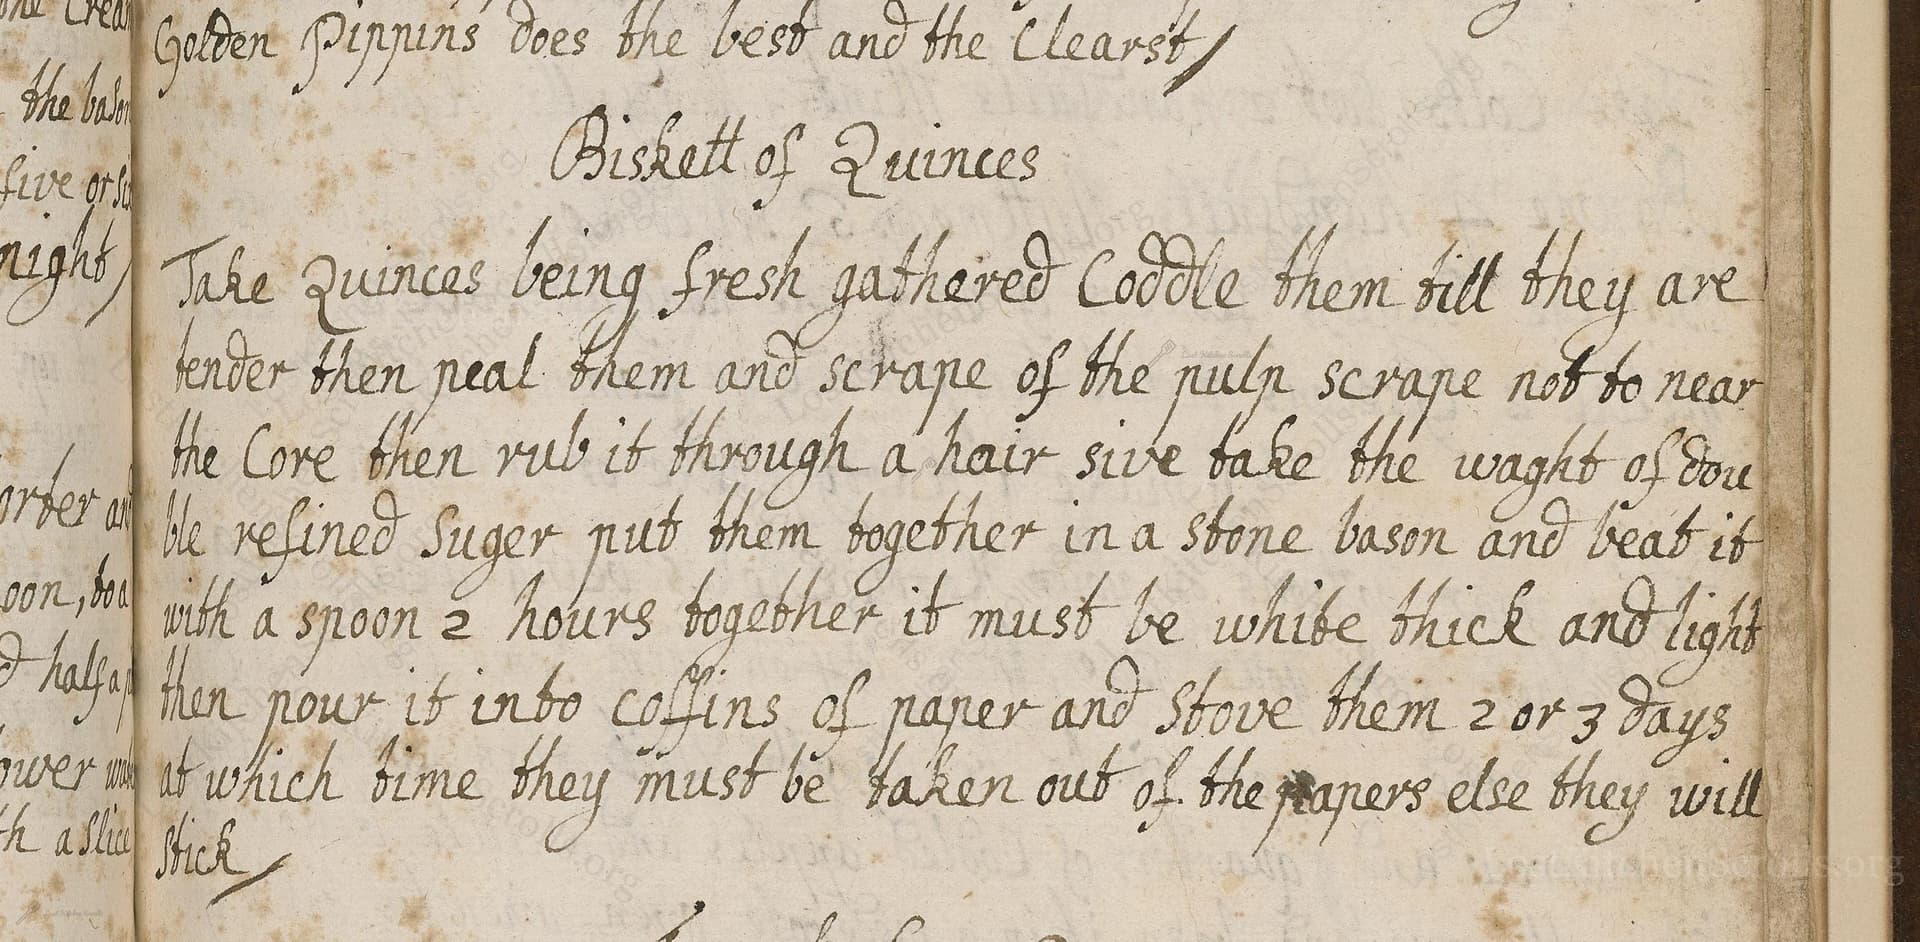 Golden Pippins does the best and the Clearst/
Biskett of Quinces
Take Quinces being fresh gathered Coddle them till they are
tender then peal them and scrape of the pulp scrape not to near
the Core then rub it through a hair sive take the waght of dou
ble refined Suger put them together in a stone bason and beat it
with a spoon 2 hours together it must be white thick and light
then pour it into coffins of paper and stove them 2 or 3 days
at which time they must be taken out of the papers else they will
stick/
the bason
five or six
night/
orter and
oon, to a
d half a
ower
th a slice